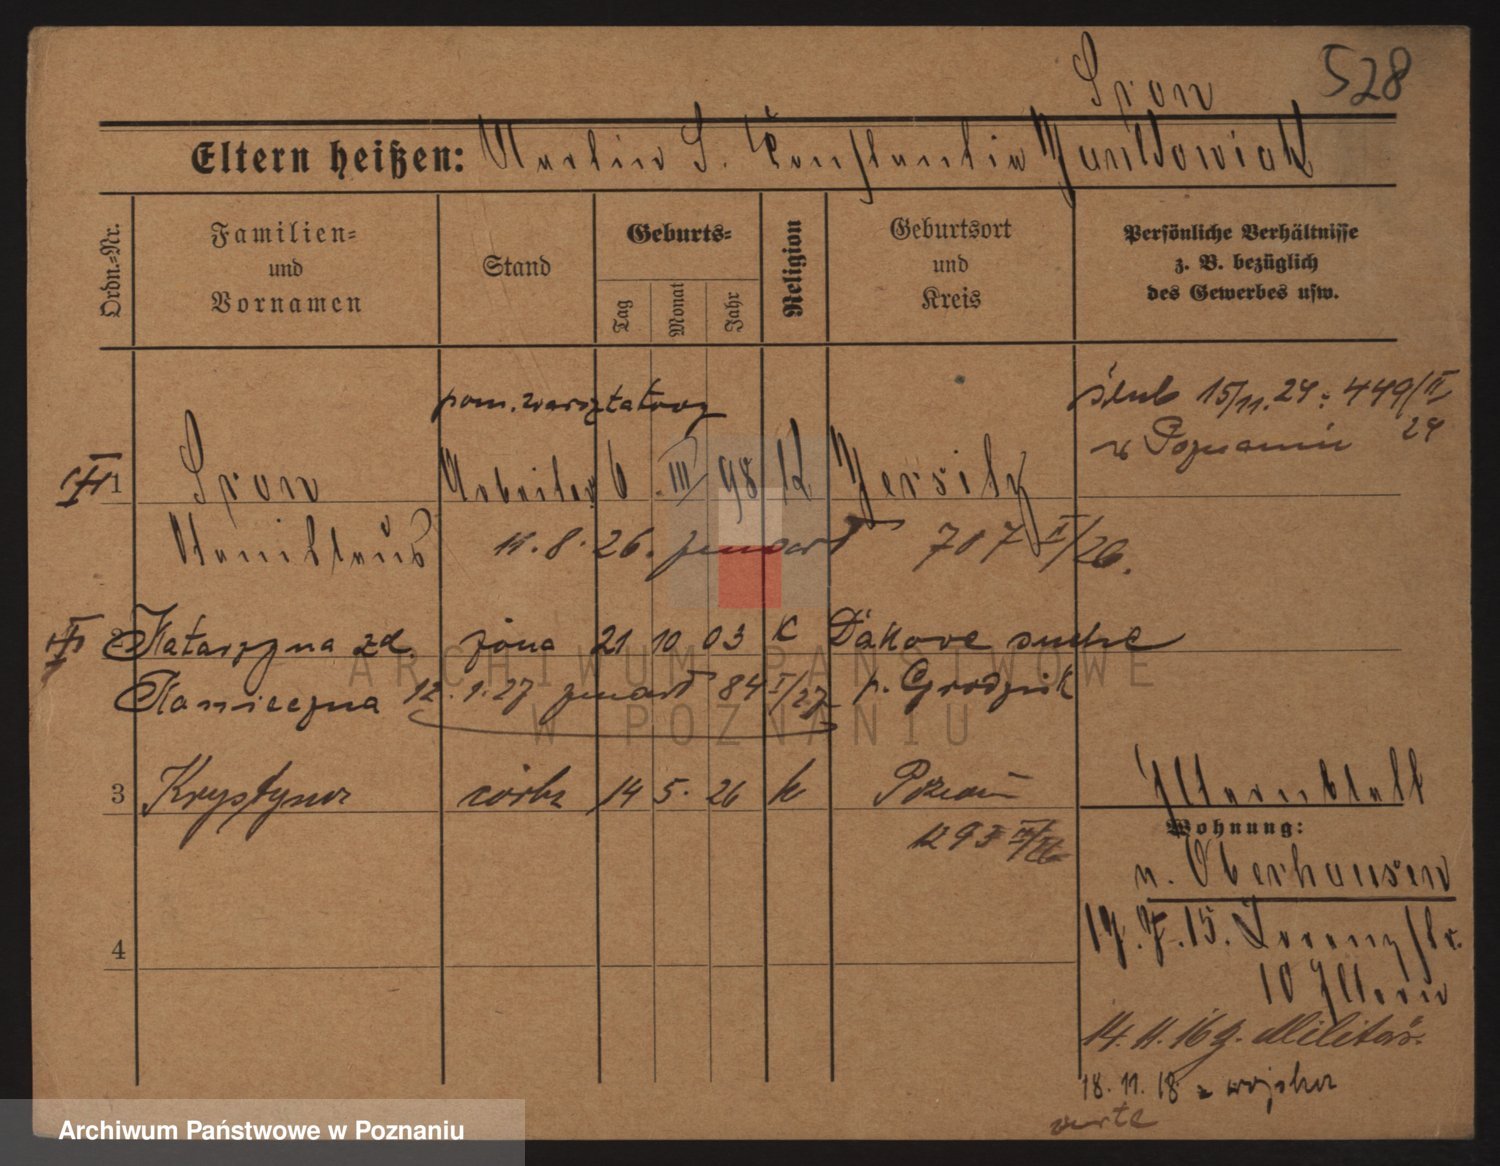 528
Sron
Eltern heißen: Martin S. Konstantia
Ordn.-Nr.
Familien-
und
Vornamen
Stand
Geburts-
Tag
Monat
Jahr
Religion
Geburtsort
und
Kreis
Persönliche Verhältnisse
z. B. bezüglich
des Gewerbes usw.
pom. warsztatowy
ślub 15/11.24: 449/II
24
w Poznaniu
1 Sron Arbeiter 6 III 98 K Jersitz
Stanislaus 11.8.26. 707 II/26.
2 Katarzyna zd. żona 21 10 03 K Dakowe suche
12.1.27 84 I/27 p. Grodzisk
3 Krystyna córka 14 5. 26 k Poznań
1293
Elternblatt
Wohnung:
n. Oberhausen
19.7.15. Lorenzstr.
10 Eltern
14.11.16 z. Militär.
18.11.18 z wojska
verte
4
ARCHIWUM PAŃSTWOWE
W POZNANIU
Archiwum Państwowe w Poznaniu